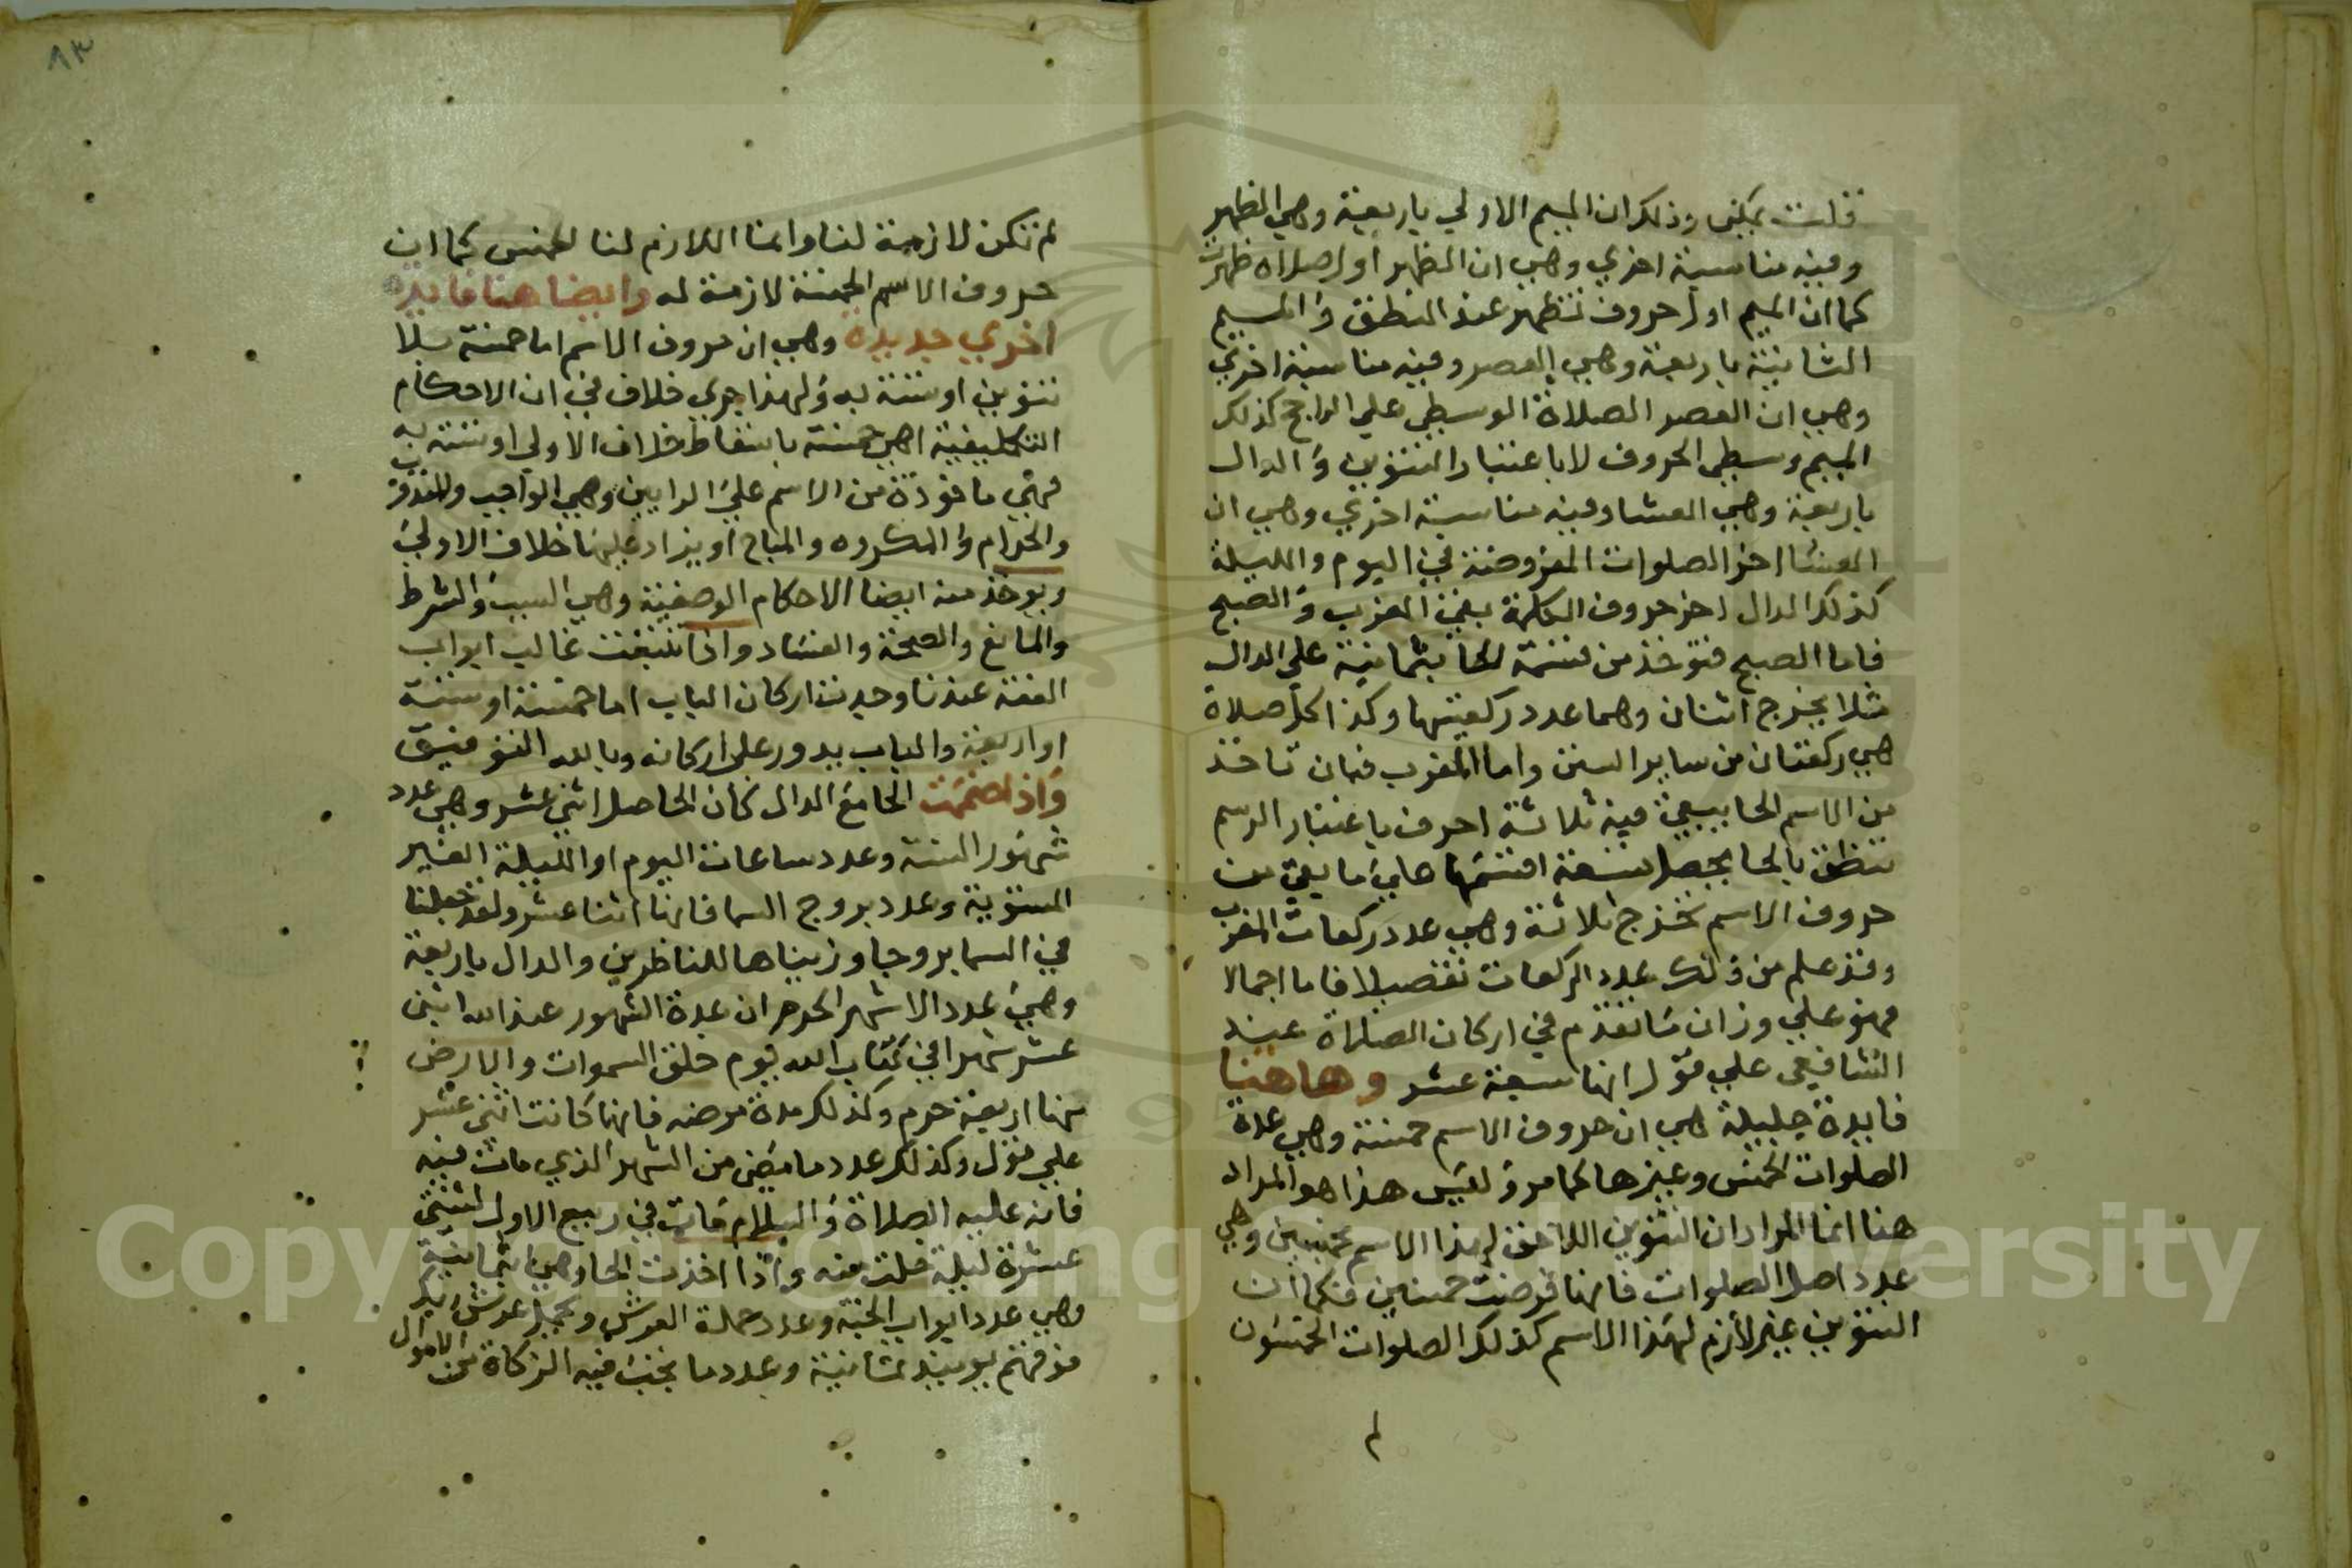 قلت يمكن وذلك ان الميم الاولي باربعة وهي الظهر
وفيه مناسبة اخري وهي ان الظهر اول صلاة ظهرت
كما ان الميم اول حروف تظهر عند النطق والميم
الثانية باربعة وهي العصر وفيه مناسبة اخري
وهي ان العصر الصلاة الوسطي علي الراجح كذلك
الميم وسطي الحروف لا باعتبار التنوين والدال
باربعة وهي العشا وفيه مناسبة اخري وهي ان
العشا اخر الصلوات المفروضة في اليوم والليلة
كذلك الدال اخر حروف الكلمة بقي المغرب والصبح
فاما الصبح فتوخذ من قسمة الحا بثمانية علي الدال
مثلا يخرج اثنان وهما عدد ركعتيها وكذا كل صلاة
هي ركعتان من ساير السنن واما المغرب فبان تاخذ
من الاسم الحا يبقي فيه ثلاثة احرف باعتبار الرسم
تنطق بالحا يحصل تسعة اقسمها علي ما بقي من
حروف الاسم تخرج ثلاثة وهي عدد ركعات المغرب
وقد علم من ذلك عدد الركعات تفصيلا فاما اجمالا
فهو علي وزان ما تقدم في اركان الصلاة عند
الشافعي علي قول انها سبعة عشر وهاهنا
فايدة جليلة هي ان حروف الاسم خمسة وهي عدة
الصلوات الخمس وغيرها كما مر وليس هذا هو المراد
هنا انما المراد ان التنوين اللاحق لهذا الاسم بخمسين وهي
عدد اصل الصلوات فانها فرضت خمسين فكما ان
التنوين غير لازم لهذا الاسم كذلك الصلوات الخمسون
لم
٨٣
لم تكن لازمة لنا وانما اللازم لنا الخمس كما ان
حروف الاسم الخمسة لازمة له وايضا هنا فايدة
اخري جديدة وهي ان حروف الاسم اما خمسة بلا
تنوين او ستة به ولهذا جري خلاف في ان الاحكام
التكليفية اهي خمسة باسقاط خلاف الاولي او ستة به
فهي ماخوذة من الاسم علي الرايين وهي الواجب والمندوب
والحرام والمكروه والمباح او يزاد عليها خلاف الاولي
ويوخذ منه ايضا الاحكام الوضعية وهي السبب والشرط
والمانع والصحة والفساد واذا تتبعت غالب ابواب
الفقه عندنا وجدت اركان الباب اما خمسة او ستة
او اربعة والباب يدور علي اركانه وبالله التوفيق
واذا ضممت الحا مع الدال كان الحاصل اثني عشر وهي عدد
شهور السنة وعدد ساعات اليوم او الليلة الغير
المستوية وعدد بروج السما فانها اثنا عشر ولقد جعلنا
في السما بروجا وزيناها للناظرين والدال باربعة
وهي عدد الاشهر الحرم ان عدة الشهور عند الله اثني
عشر شهرا في كتاب الله يوم خلق السموات والارض
منها اربعة حرم وكذلك مدة مرضه فانها كانت اثني عشر
علي قول وكذلك عدد ما مضي من الشهر الذي مات فيه
فانه عليه الصلاة والسلام مات في ربيع الاول لثنتي
عشرة ليلة خلت منه واذا اخذت الحا وهي بثمانية
وهي عدد ابواب الجنة وعدد حملة العرش ويحمل عرش ربك
فوقهم يوميذ ثمانية وعدد ما يجب فيه الزكاة من الاموال